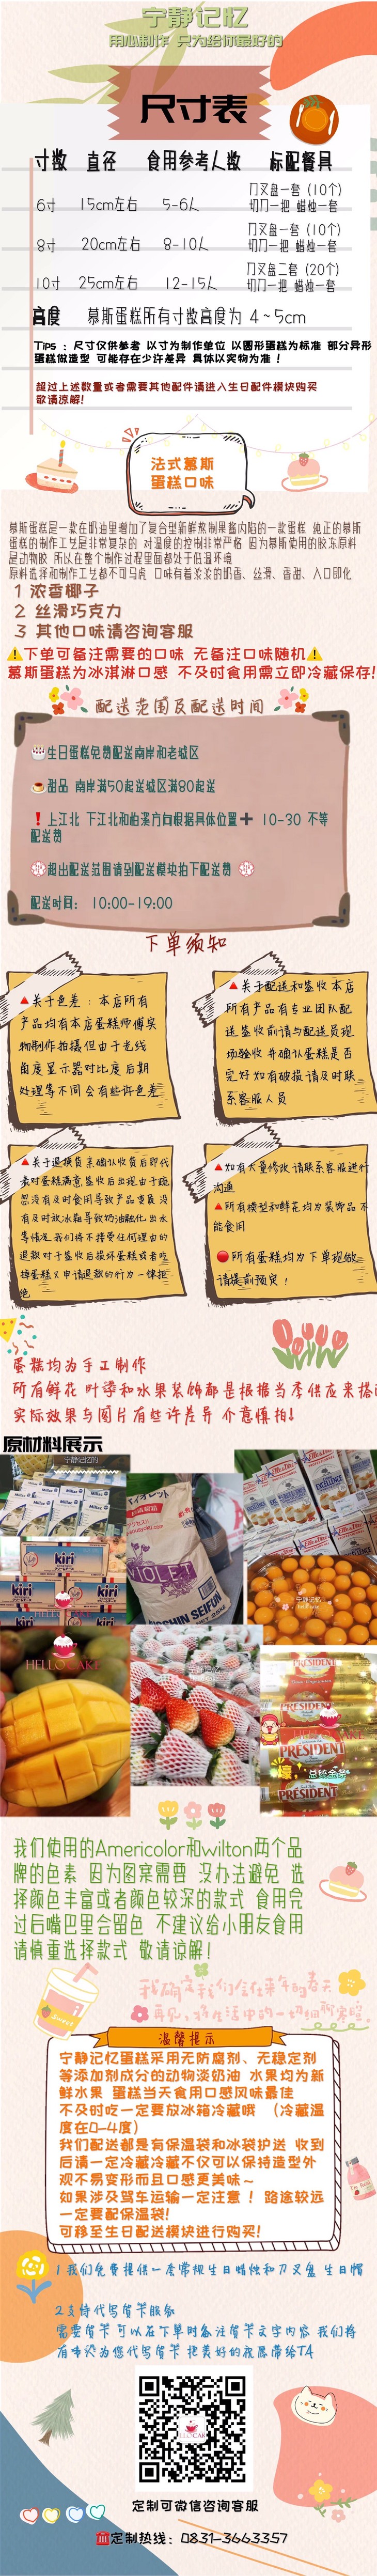 宁静记忆
用心制作 只为给你最好的
尺寸表
寸数 直径 食用参考人数 标配餐具
6寸 15cm左右 5-6人 刀叉盘一套（10个）
切刀一把 蜡烛一套
8寸 20cm左右 8-10人 刀叉盘一套（10个）
切刀一把 蜡烛一套
10寸 25cm左右 12-15人 刀叉盘二套（20个）
切刀一把 蜡烛一套
高度 慕斯蛋糕所有寸数高度为 4~5cm
Tips：尺寸仅供参考 以寸为制作单位 以圆形蛋糕为标准 部分异形
蛋糕做造型 可能存在少许差异 具体以实物为准！
超过上述数量或者需要其他配件请进入生日配件模块购买
敬请谅解!
法式慕斯
蛋糕口味
慕斯蛋糕是一款在奶油里增加了复合型新鲜熬制果酱内陷的一款蛋糕 纯正的慕斯
蛋糕的制作工艺是非常复杂的 对温度的控制非常严格 因为慕斯使用的胶冻原料
是动物胶 所以在整个制作过程里面都处于低温环境
原料选择和制作工艺都不可马虎 口味有着淡淡的奶香、丝滑、香甜、入口即化
1 浓香椰子
2 丝滑巧克力
3 其他口味请咨询客服
⚠下单可备注需要的口味 无备注口味随机⚠
慕斯蛋糕为冰淇淋口感 不及时食用需立即冷藏保存!
配送范围及配送时间
生日蛋糕免费配送南岸和老城区
甜品 南岸满50起送城区满80起送
❗上江北 下江北和柏溪方向根据具体位置➕ 10-30 不等
配送费
超出配送范围请到配送模块拍下配送费
配送时间: 10:00-19:00
下单须知
🔺关于色差：本店所有
产品均有本店蛋糕师傅实
物制作拍摄但由于光线
角度显示器对比度后期
处理等不同会有些许色差
🔺关于配送和签收本店
所有产品有专业团队配
送签收前请与配送员现
场验收 并确认蛋糕是否
完好如有破损请及时联
系客服人员
🔺关于退换货亲确认收货后即代
表对蛋糕满意签收后出现由于疏
忽没有及时食用导致产品变质 没
有及时放冰箱导致奶油融化出水
等情况我们将不接受任何理由的
退款对于签收后损坏蛋糕或者吃
掉蛋糕又申请退款的行为一律拒
绝
🔺如有大量修改请联系客服进行
沟通
🔺所有模型和鲜花均为装饰品不
能食用
🔴所有蛋糕均为下单现做
请提前预定！
蛋糕均为手工制作
所有鲜花 叶子和水果装饰都是根据当季供应来搭配
实际效果与图片有些许差异 介意慎拍!
原材料展示
宁静记忆的
Miltec
kiri
HELLO CAKE
バイオレット
VIOLET
NISSHIN SEIFUN
宁静记忆
PRÉSIDENT
壕,
总统金条
我们使用的Americolor和wilton两个品
牌的色素 因为图案需要 没办法避免 选
择颜色丰富或者颜色较深的款式 食用完
过后嘴巴里会留色 不建议给小朋友食用
请慎重选择款式 敬请谅解！
我确定我们会在来年的春天
再见
温馨提示
宁静记忆蛋糕采用无防腐剂、无稳定剂
等添加剂成分的动物淡奶油 水果均为新
鲜水果 蛋糕当天食用口感风味最佳
不及时吃一定要放冰箱冷藏哦 （冷藏温
度在0-4度）
我们配送都是有保温袋和冰袋护送 收到
后请一定冷藏冷藏不仅可以保持造型外
观不易变形而且口感更美味～
如果涉及驾车运输一定注意！路途较远
一定要配保温袋!
可移至生日配送模块进行购买!
1 我们免费提供一套常规生日蜡烛和刀叉盘 生日帽
2 支持代写贺卡服务
需要贺卡可以在下单时备注贺卡文字内容 我们将
有时间为您代写贺卡 把美好的祝愿带给TA
定制可微信咨询客服
☎定制热线：0831-3663357